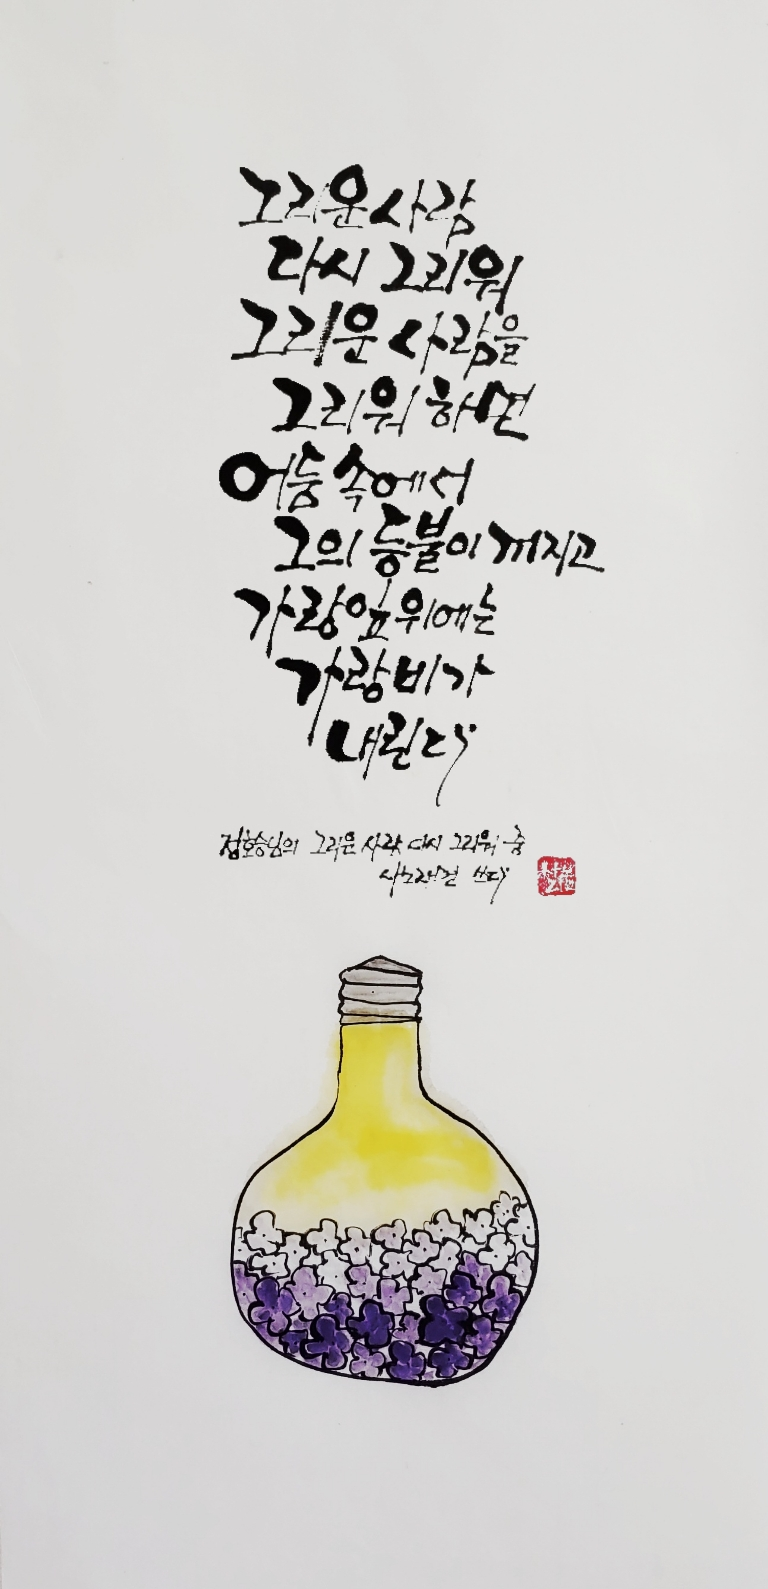 그리운 사람
다시 그리워
그리운 사람을
그리워 하면
어둠 속에서
그의 등불이 꺼지고
가랑잎 위에는
가랑비가
내린다
정호승님의 그리운 사람 다시 그리워 중
쓰다